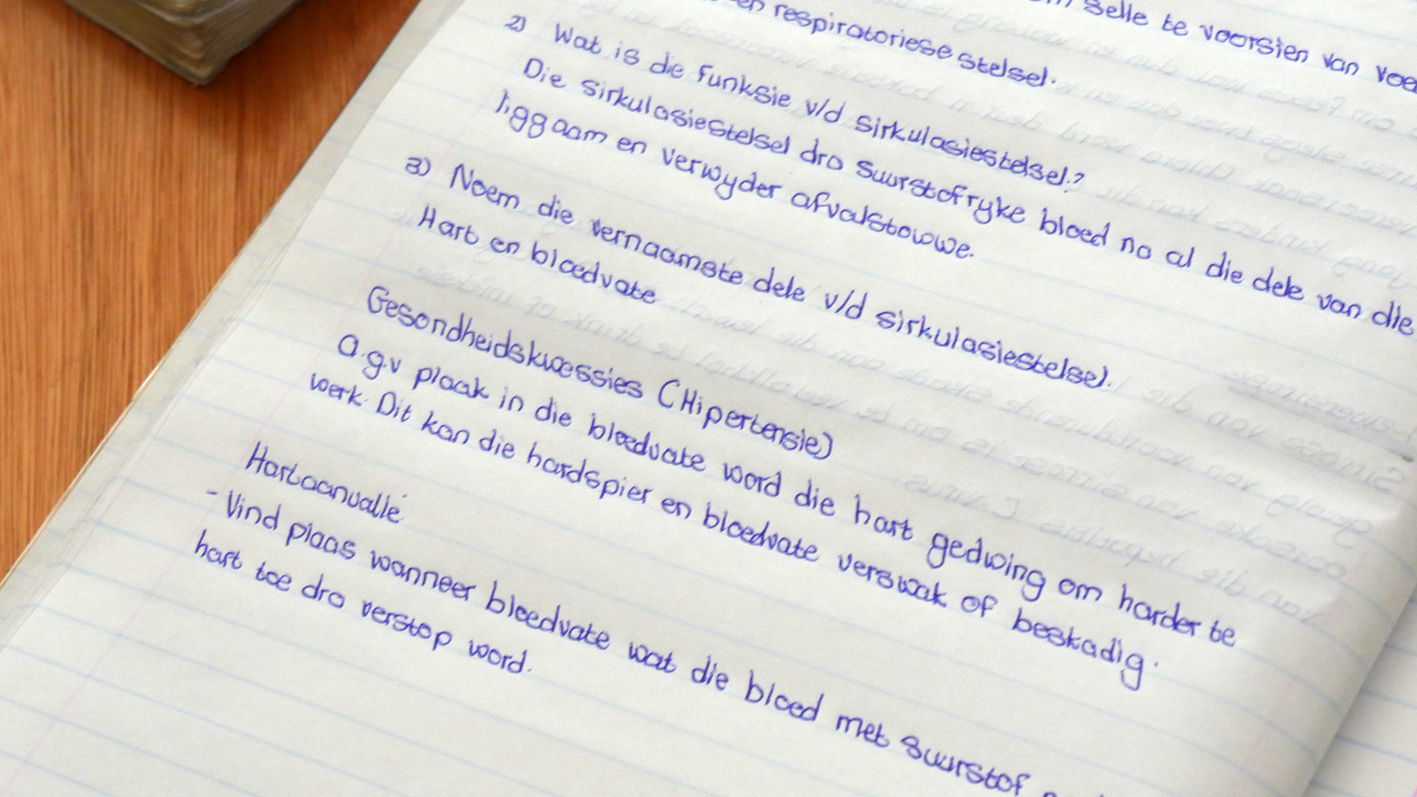 selle te voorsien van
en respiratoriese stelsel.
2) Wat is die funksie v/d sirkulasiestelsel?
Die sirkulasiestelsel dra suurstofryke bloed na al die dele van die
liggaam en verwyder afvalstowwe.
3) Noem die vernaamste dele v/d sirkulasiestelsel.
Hart en bloedvate
Gesondheidskwessies (Hipertensie)
a.g.v plaak in die bloedvate word die hart gedwing om harder te
werk. Dit kan die hardspier en bloedvate verswak of beskadig.
Hartaanvalle
- Vind plaas wanneer bloedvate wat die bloed met suurstof
hart toe dra verstop word.